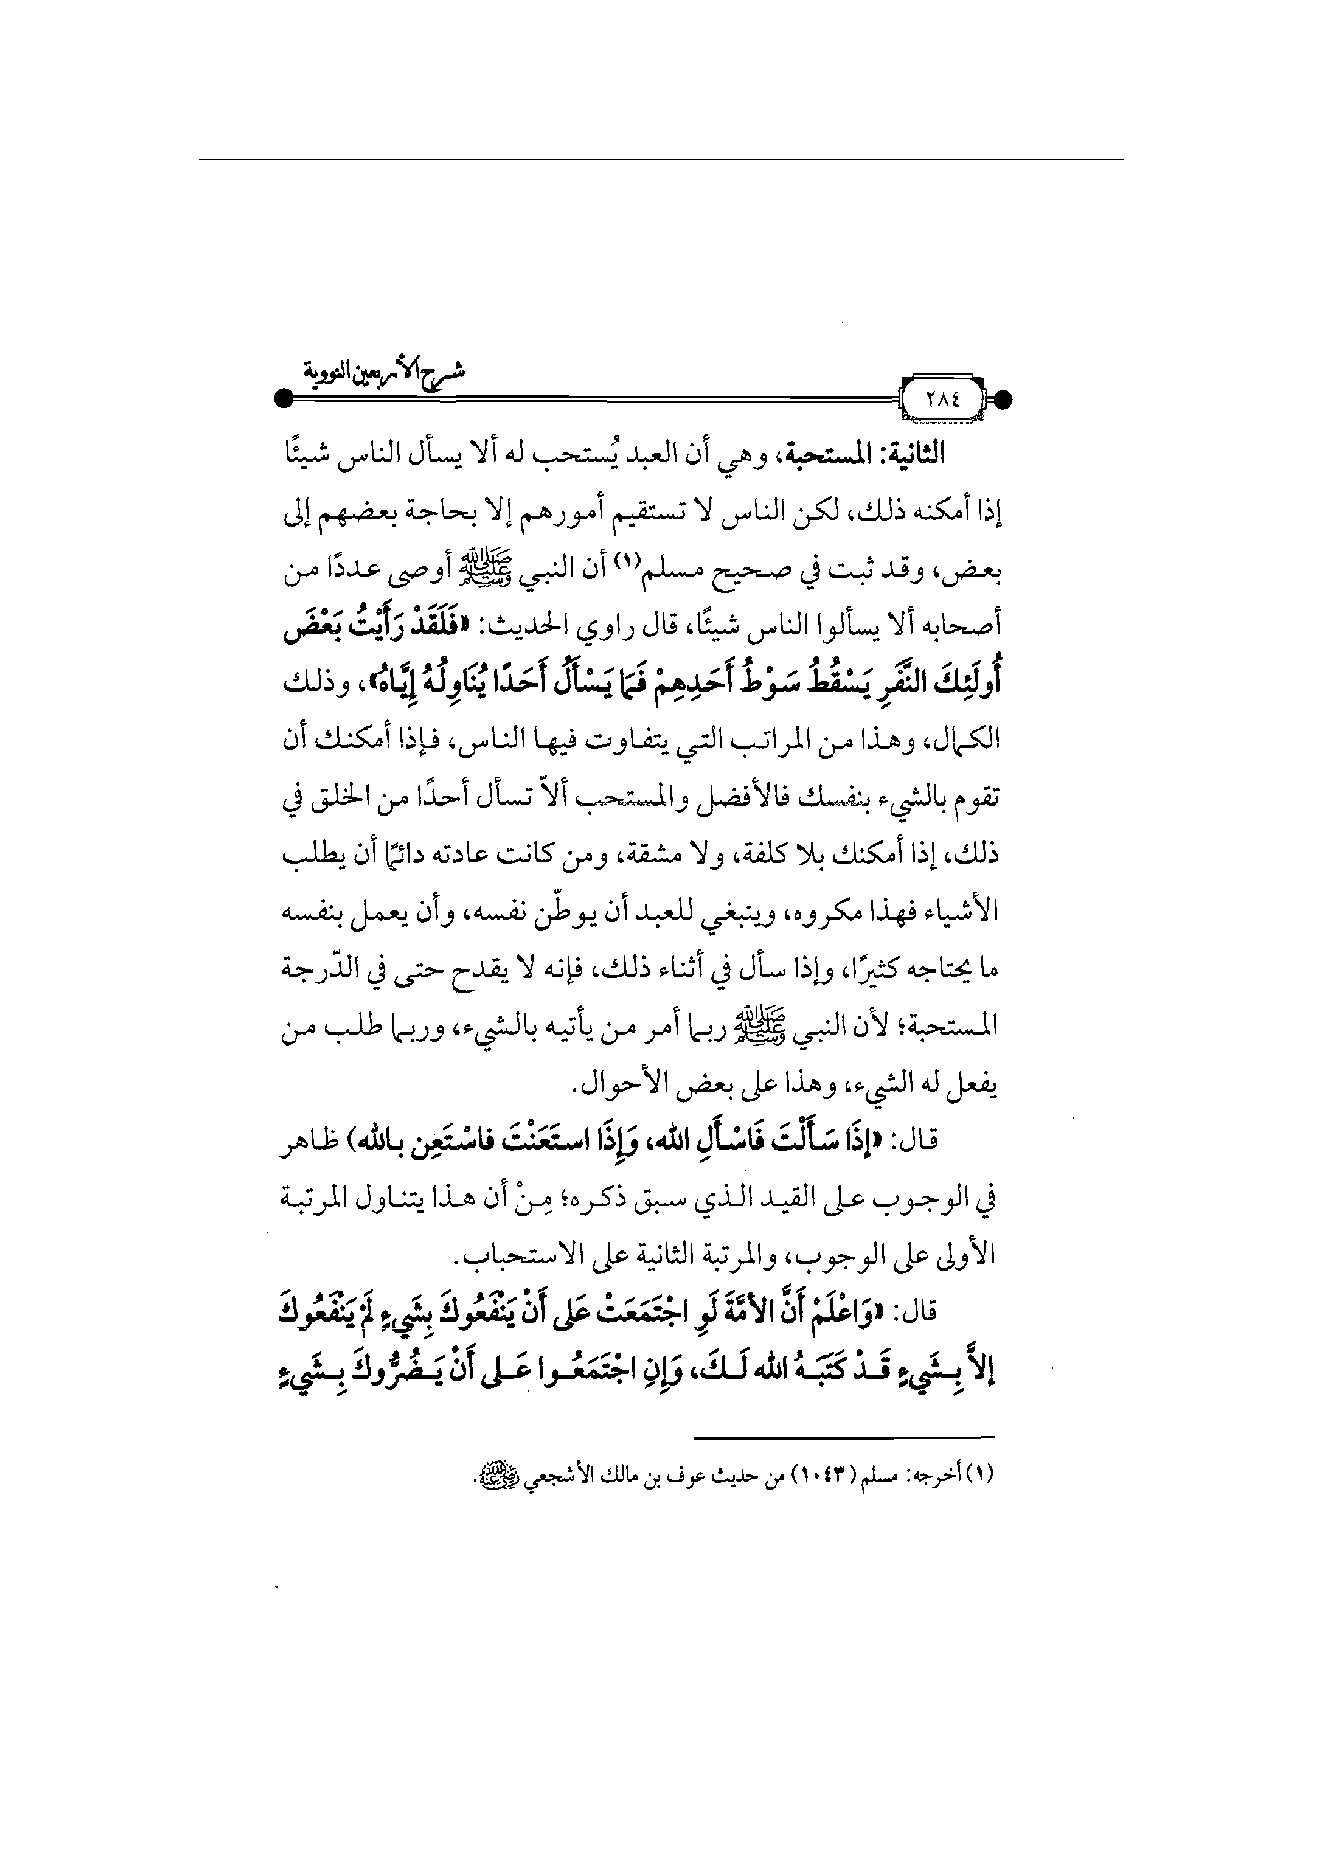 شرح الأربعين النووية
٢٨٤
الثانية: المستحبة، وهي أن العبد يُستحب له ألا يسأل الناس شيئًا
إذا أمكنه ذلك، لكن الناس لا تستقيم أمورهم إلا بحاجة بعضهم إلى
بعض، وقد ثبت في صحيح مسلم(١) أن النبي ﷺ أوصى عددًا من
أصحابه ألا يسألوا الناس شيئًا، قال راوي الحديث: «فَلَقَدْ رَأَيْتُ بَعْضَ
أُولَئِكَ النَّفَرِ يَسْقُطُ سَوْطُ أَحَدِهِمْ فَمَا يَسْأَلُ أَحَدًا يُنَاوِلُهُ إِيَّاهُ»، وذلك
الكمال، وهذا من المراتب التي يتفاوت فيها الناس، فإذا أمكنك أن
تقوم بالشيء بنفسك فالأفضل والمستحب ألاّ تسأل أحدًا من الخلق في
ذلك، إذا أمكنك بلا كلفة، ولا مشقة، ومن كانت عادته دائمًا أن يطلب
الأشياء فهذا مكروه، وينبغي للعبد أن يوطّن نفسه، وأن يعمل بنفسه
ما يحتاجه كثيرًا، وإذا سأل في أثناء ذلك، فإنه لا يقدح حتى في الدّرجة
المستحبة؛ لأن النبي ﷺ ربما أمر من يأتيه بالشيء، وربما طلب من
يفعل له الشيء، وهذا على بعض الأحوال.
قال: «إِذَا سَأَلْتَ فَاسْأَلِ الله، وَإِذَا استَعَنْتَ فاسْتَعِن بـالله) ظاهر
في الوجوب على القيد الذي سبق ذكره؛ مِنْ أن هذا يتناول المرتبة
الأولى على الوجوب، والمرتبة الثانية على الاستحباب.
قال: «وَاعْلَمْ أَنَّ الأمَّةَ لَوِ اجْتَمَعَتْ عَلى أَنْ يَنْفَعُوكَ بِشَيءٍ لَمْ يَنْفَعُوكَ
إلاَّ بِشَيءٍ قَدْ كَتَبَهُ الله لَكَ، وَإِنِ اجْتَمَعُوا عَلى أَنْ يَضُرُّوكَ بِشَيءٍ
(١) أخرجه: مسلم (١٠٤٣) من حديث عوف بن مالك الأشجعي رضي الله عنه.